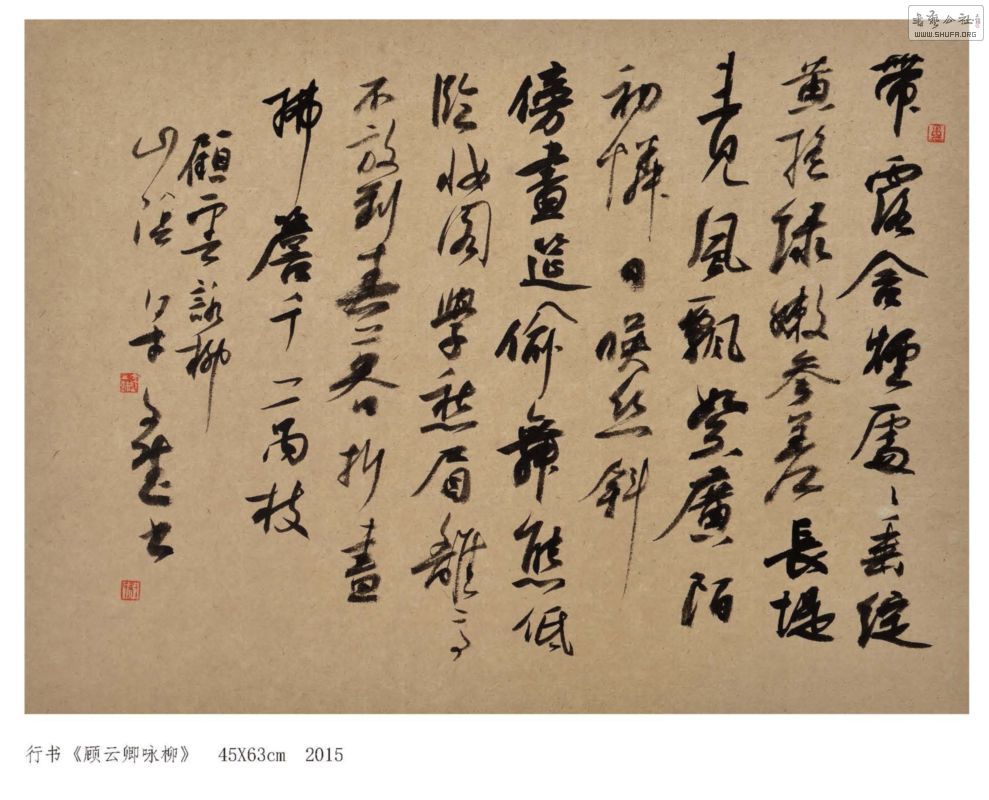 帶露含煙處〻垂綻
黃搖綠嫩參差長堤
未見風飄絮廣陌
初憐日暎絲斜
傍畫筵偷舞態低
臨妝閣學愁眉離亭
不放到春暮折盡
拂簷千萬枝
顧雲詠柳
山 書
書藝公社
WWW.SHUFA.ORG
行书《顾云卿咏柳》 45X63cm 2015